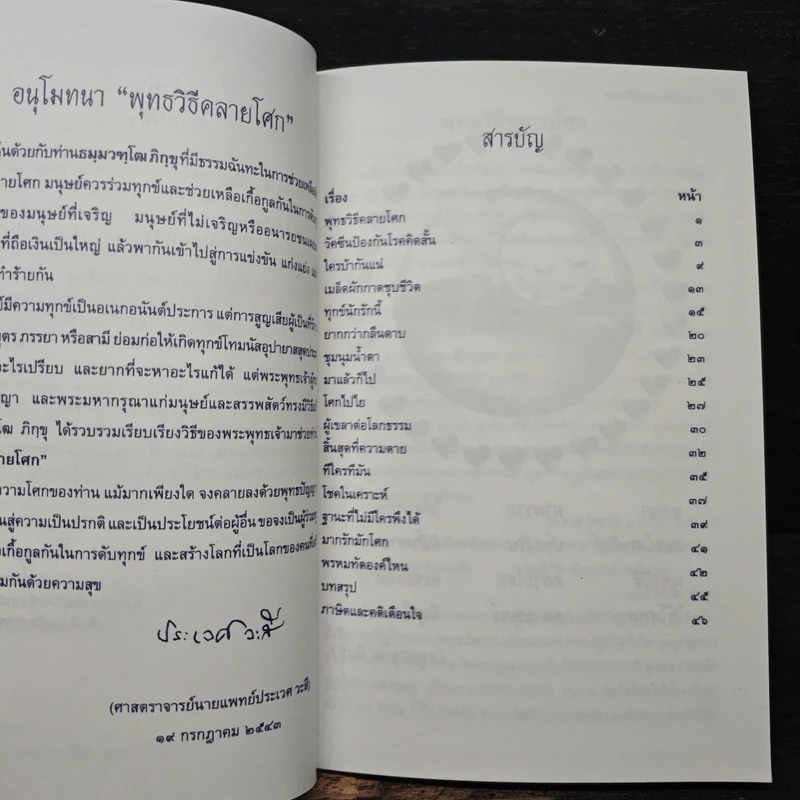 อนุโมทนา “พุทธวิธีคลายโศก”
ด้วยกับท่านธมฺมวฑฺโฒ ภิกฺขุที่มีธรรมฉันทะในการช่วยเหลือ
ายโศก มนุษย์ควรร่วมทุกข์และช่วยเหลือเกื้อกูลกันในการ
ของมนุษย์ที่เจริญ มนุษย์ที่ไม่เจริญหรืออนารยชน
ที่ถือเงินเป็นใหญ่ แล้วพากันเข้าไปสู่การแข่งขัน แก่งแย่ง
ทำร้ายกัน
มีความทุกข์เป็นอเนกอนันต์ประการ แต่การสูญเสียผู้เป็นที่
บุตร ภรรยา หรือสามี ย่อมก่อให้เกิดทุกข์โทมนัสอุปายาส
อะไรเปรียบ และยากที่จะหาอะไรแก้ได้ แต่พระพุทธเจ้า
และพระมหากรุณาแก่มนุษย์และสรรพสัตว์ทรงมี
ฒ ภิกฺขุ ได้รวบรวมเรียบเรียงวิธีของพระพุทธเจ้ามาช่วย
ายโศก”
ความโศกของท่าน แม้มากเพียงใด จงคลายลงด้วยพุทธปัญญา
สู่ความเป็นปรกติ และเป็นประโยชน์ต่อผู้อื่น ขอจงเป็นผู้ร่วม
เกื้อกูลกันในการดับทุกข์ และสร้างโลกที่เป็นโลกของคนที่
มกันด้วยความสุข
ประเวศ วะสี
(ศาสตราจารย์นายแพทย์ประเวศ วะสี)
๑๙ กรกฎาคม ๒๕๔๓
สารบัญ
เรื่อง หน้า
พุทธวิธีคลายโศก ๑
วัคซีนป้องกันโรคคิดสั้น ๓
ใครบ้ากันแน่ ๙
เมล็ดผักกาดชุบชีวิต ๑๓
ทุกข์นักรักนี้ ๑๕
ยากกว่ากลืนดาบ ๒๐
ชุมนุมน้ำตา ๒๓
มาแล้วก็ไป ๒๕
โศกไปไย ๒๗
ผู้เขลาต่อโลกธรรม ๓๐
สิ้นสุดที่ความตาย ๓๒
ทีใครทีมัน ๓๕
โชคในเคราะห์ ๓๗
ฐานะที่ไม่มีใครพึงได้ ๓๙
มากรักมักโศก ๔๑
พรหมทัตองค์ไหน ๔๒
บทสรุป ๔๕
ภาษิตและคติเตือนใจ ๔๖